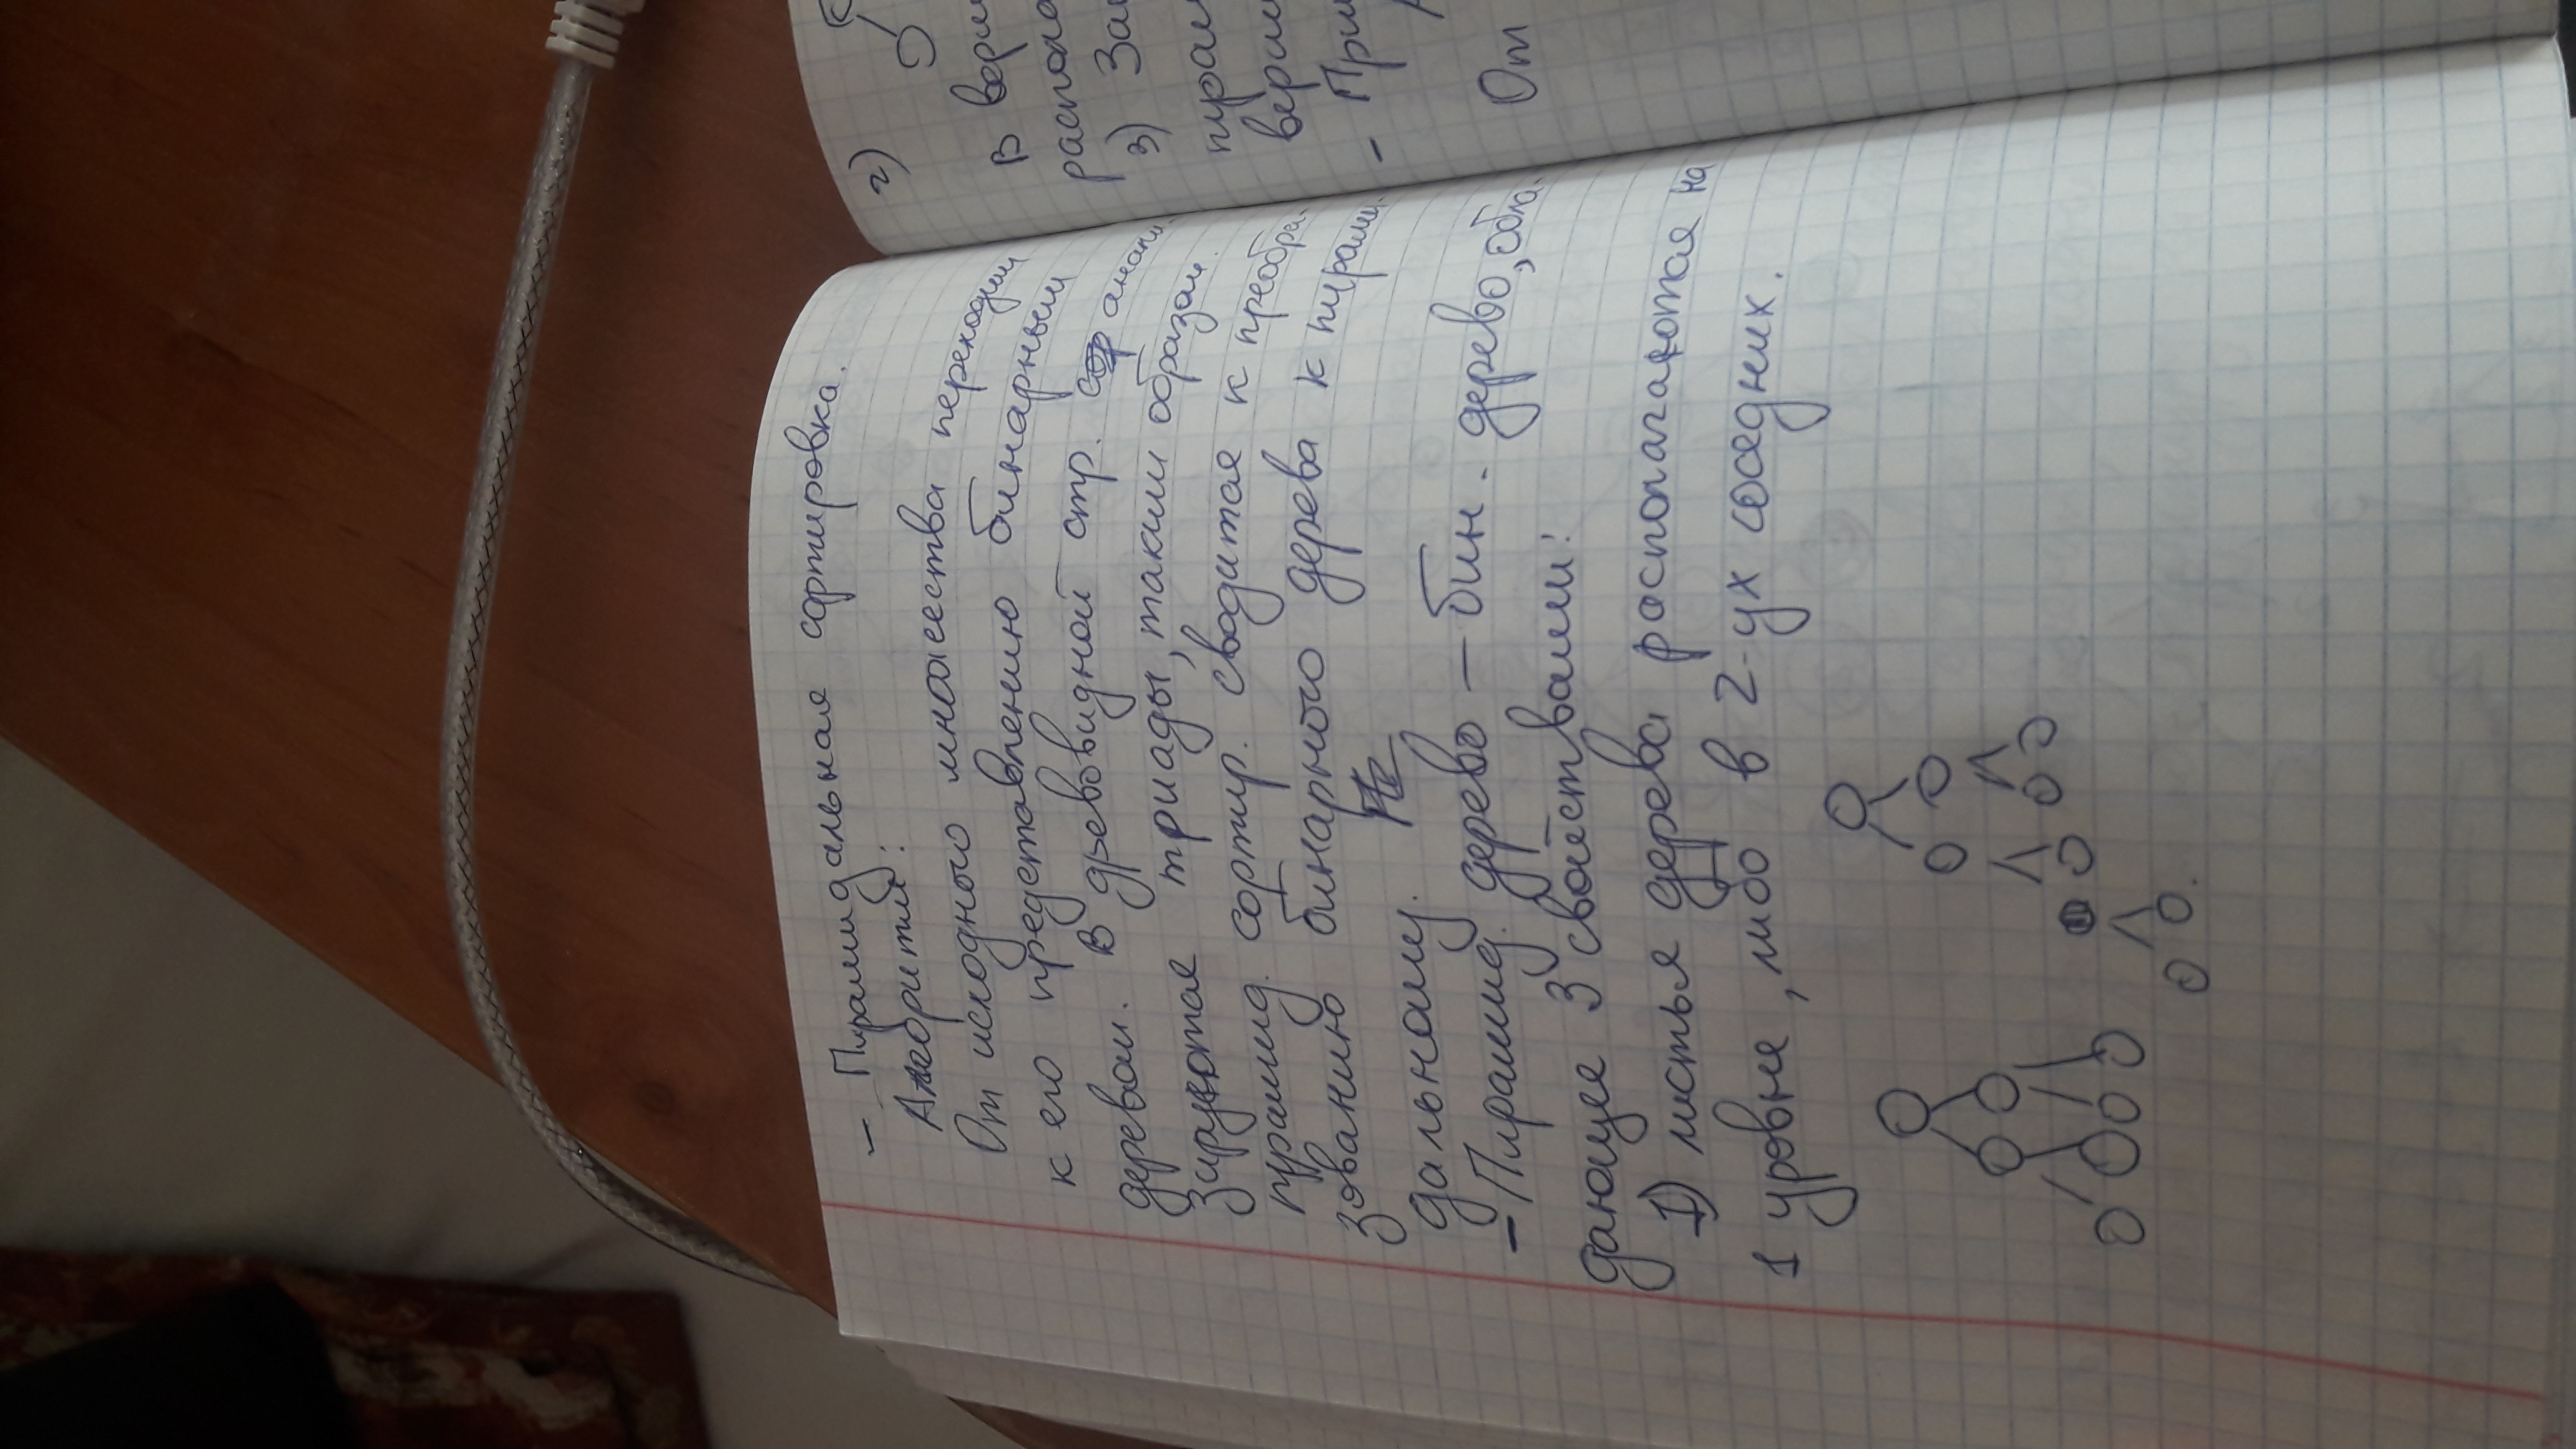 - Пирамидальная сортировка.
Алгоритм:
От исходного множества переходим
к его представлению бинарным
деревом. В древовидной стр. анали-
зируются триады, таким образом.
пирамид. сортир. сводится к преобра-
зованию бинарного дерева к пирами-
дальному.
- Пирамид. дерево - бин. дерево, обла-
дающее 3 свойствами:
1) листья дерева располагаются на
1 уровне, либо в 2-ух соседних.
2)
В верш
располо
3) Зан
пирам
верши
- При
От